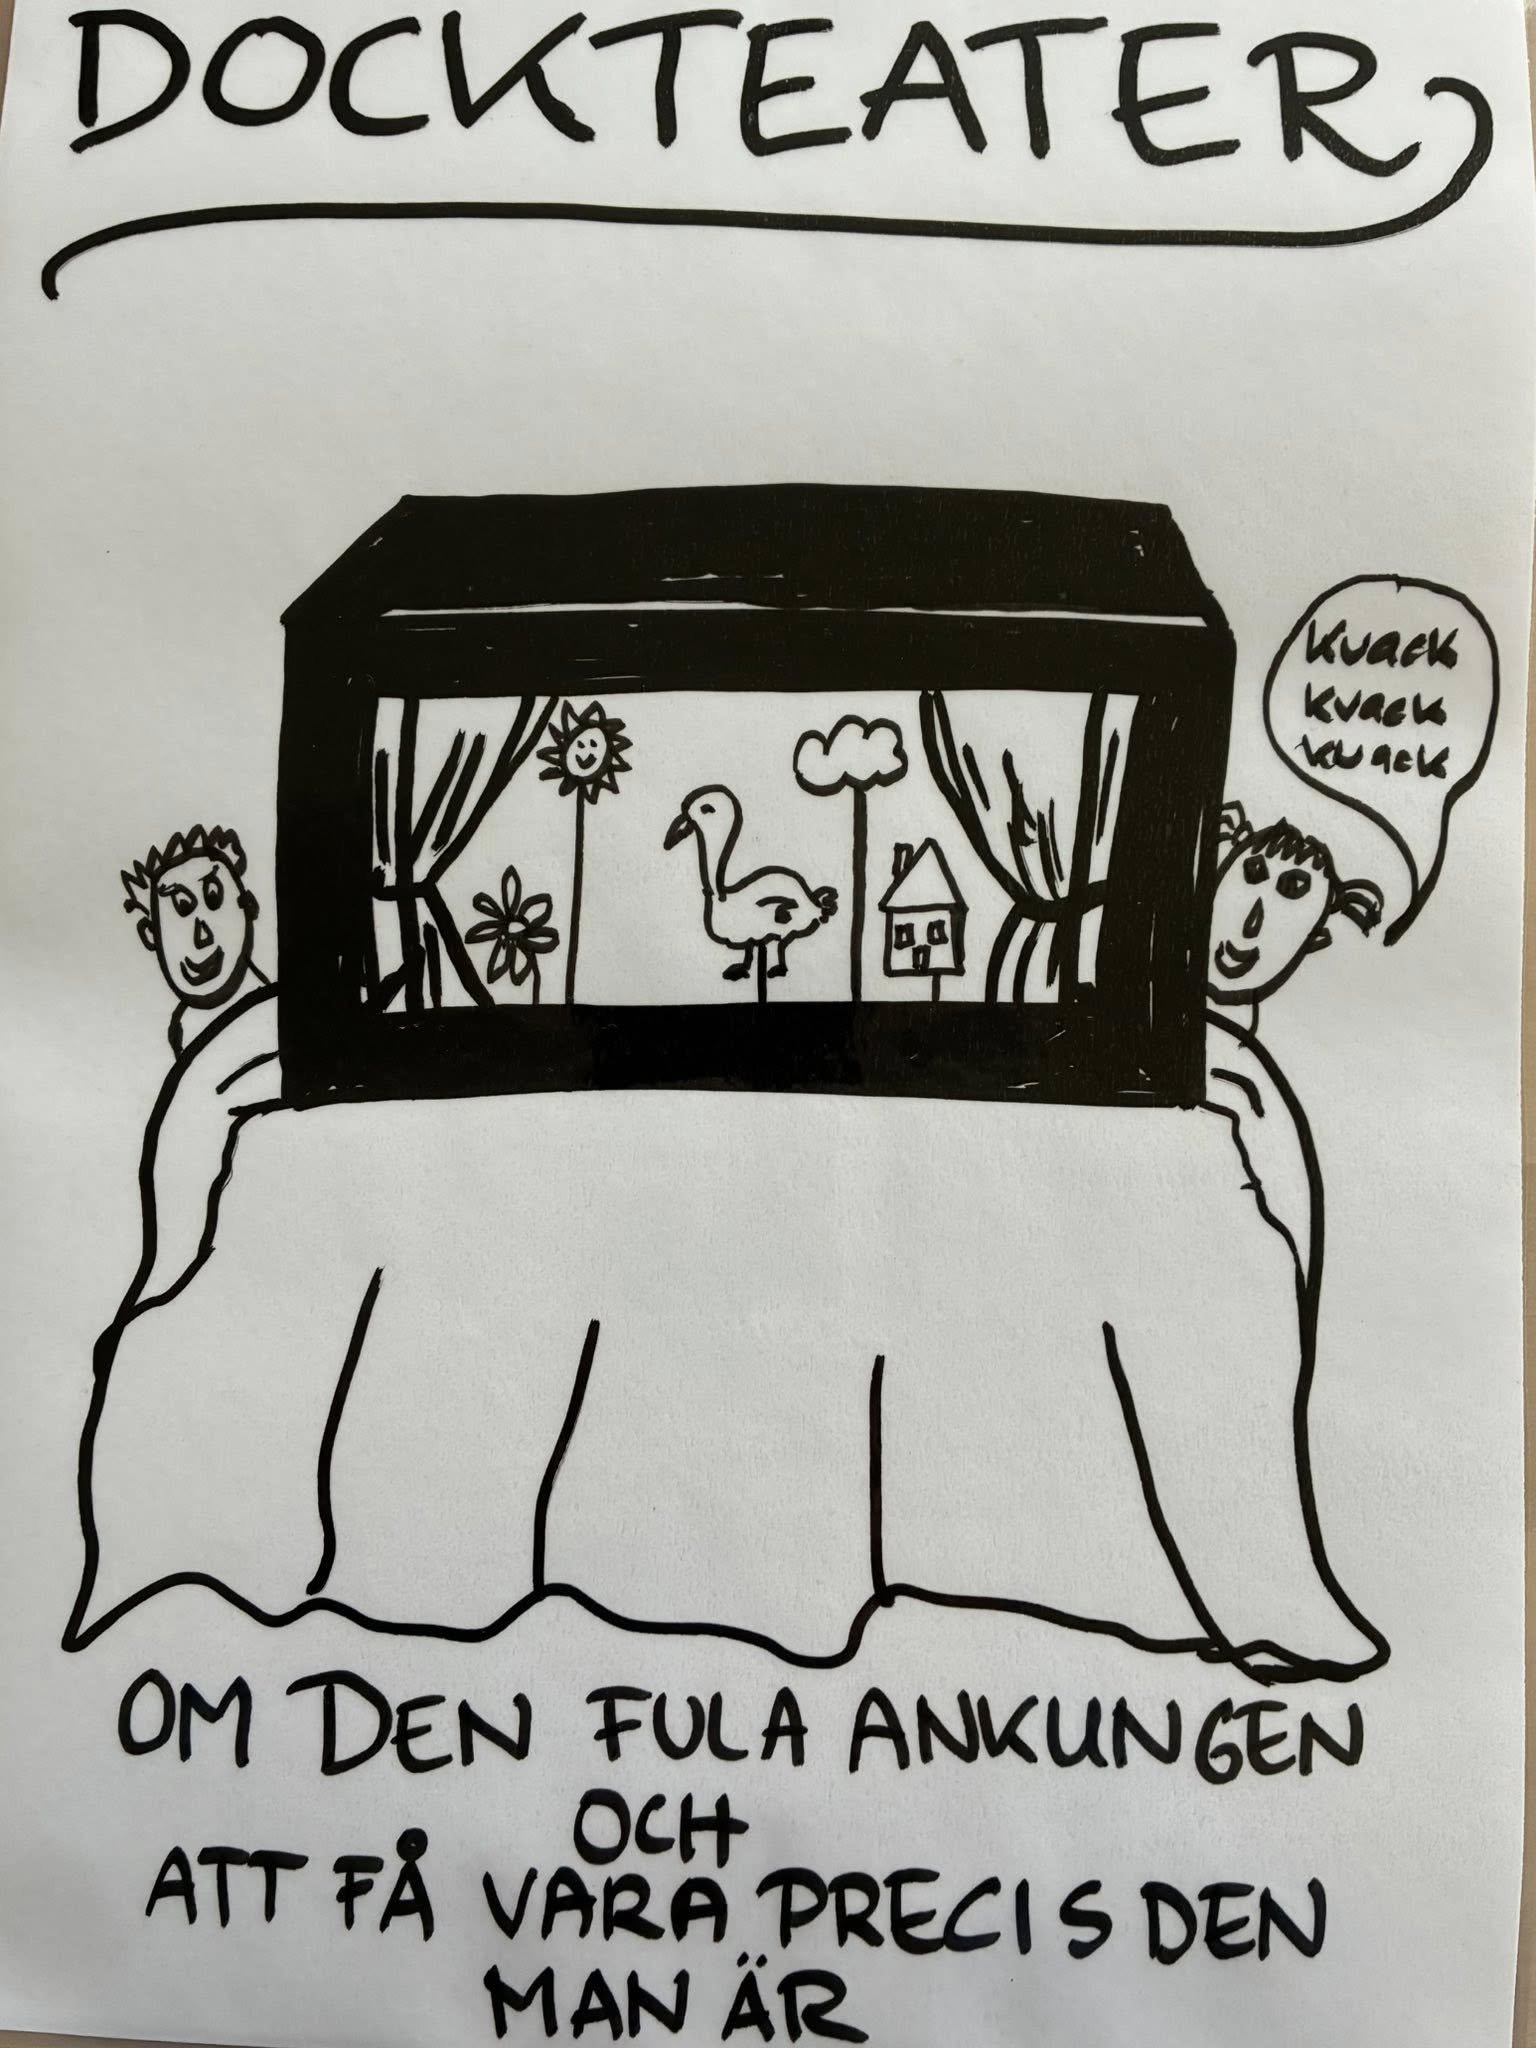 DOCKTEATER
kvack
kvack
kvack
OM DEN FULA ANKUNGEN
OCH
ATT FÅ VARA PRECIS DEN
MAN ÄR